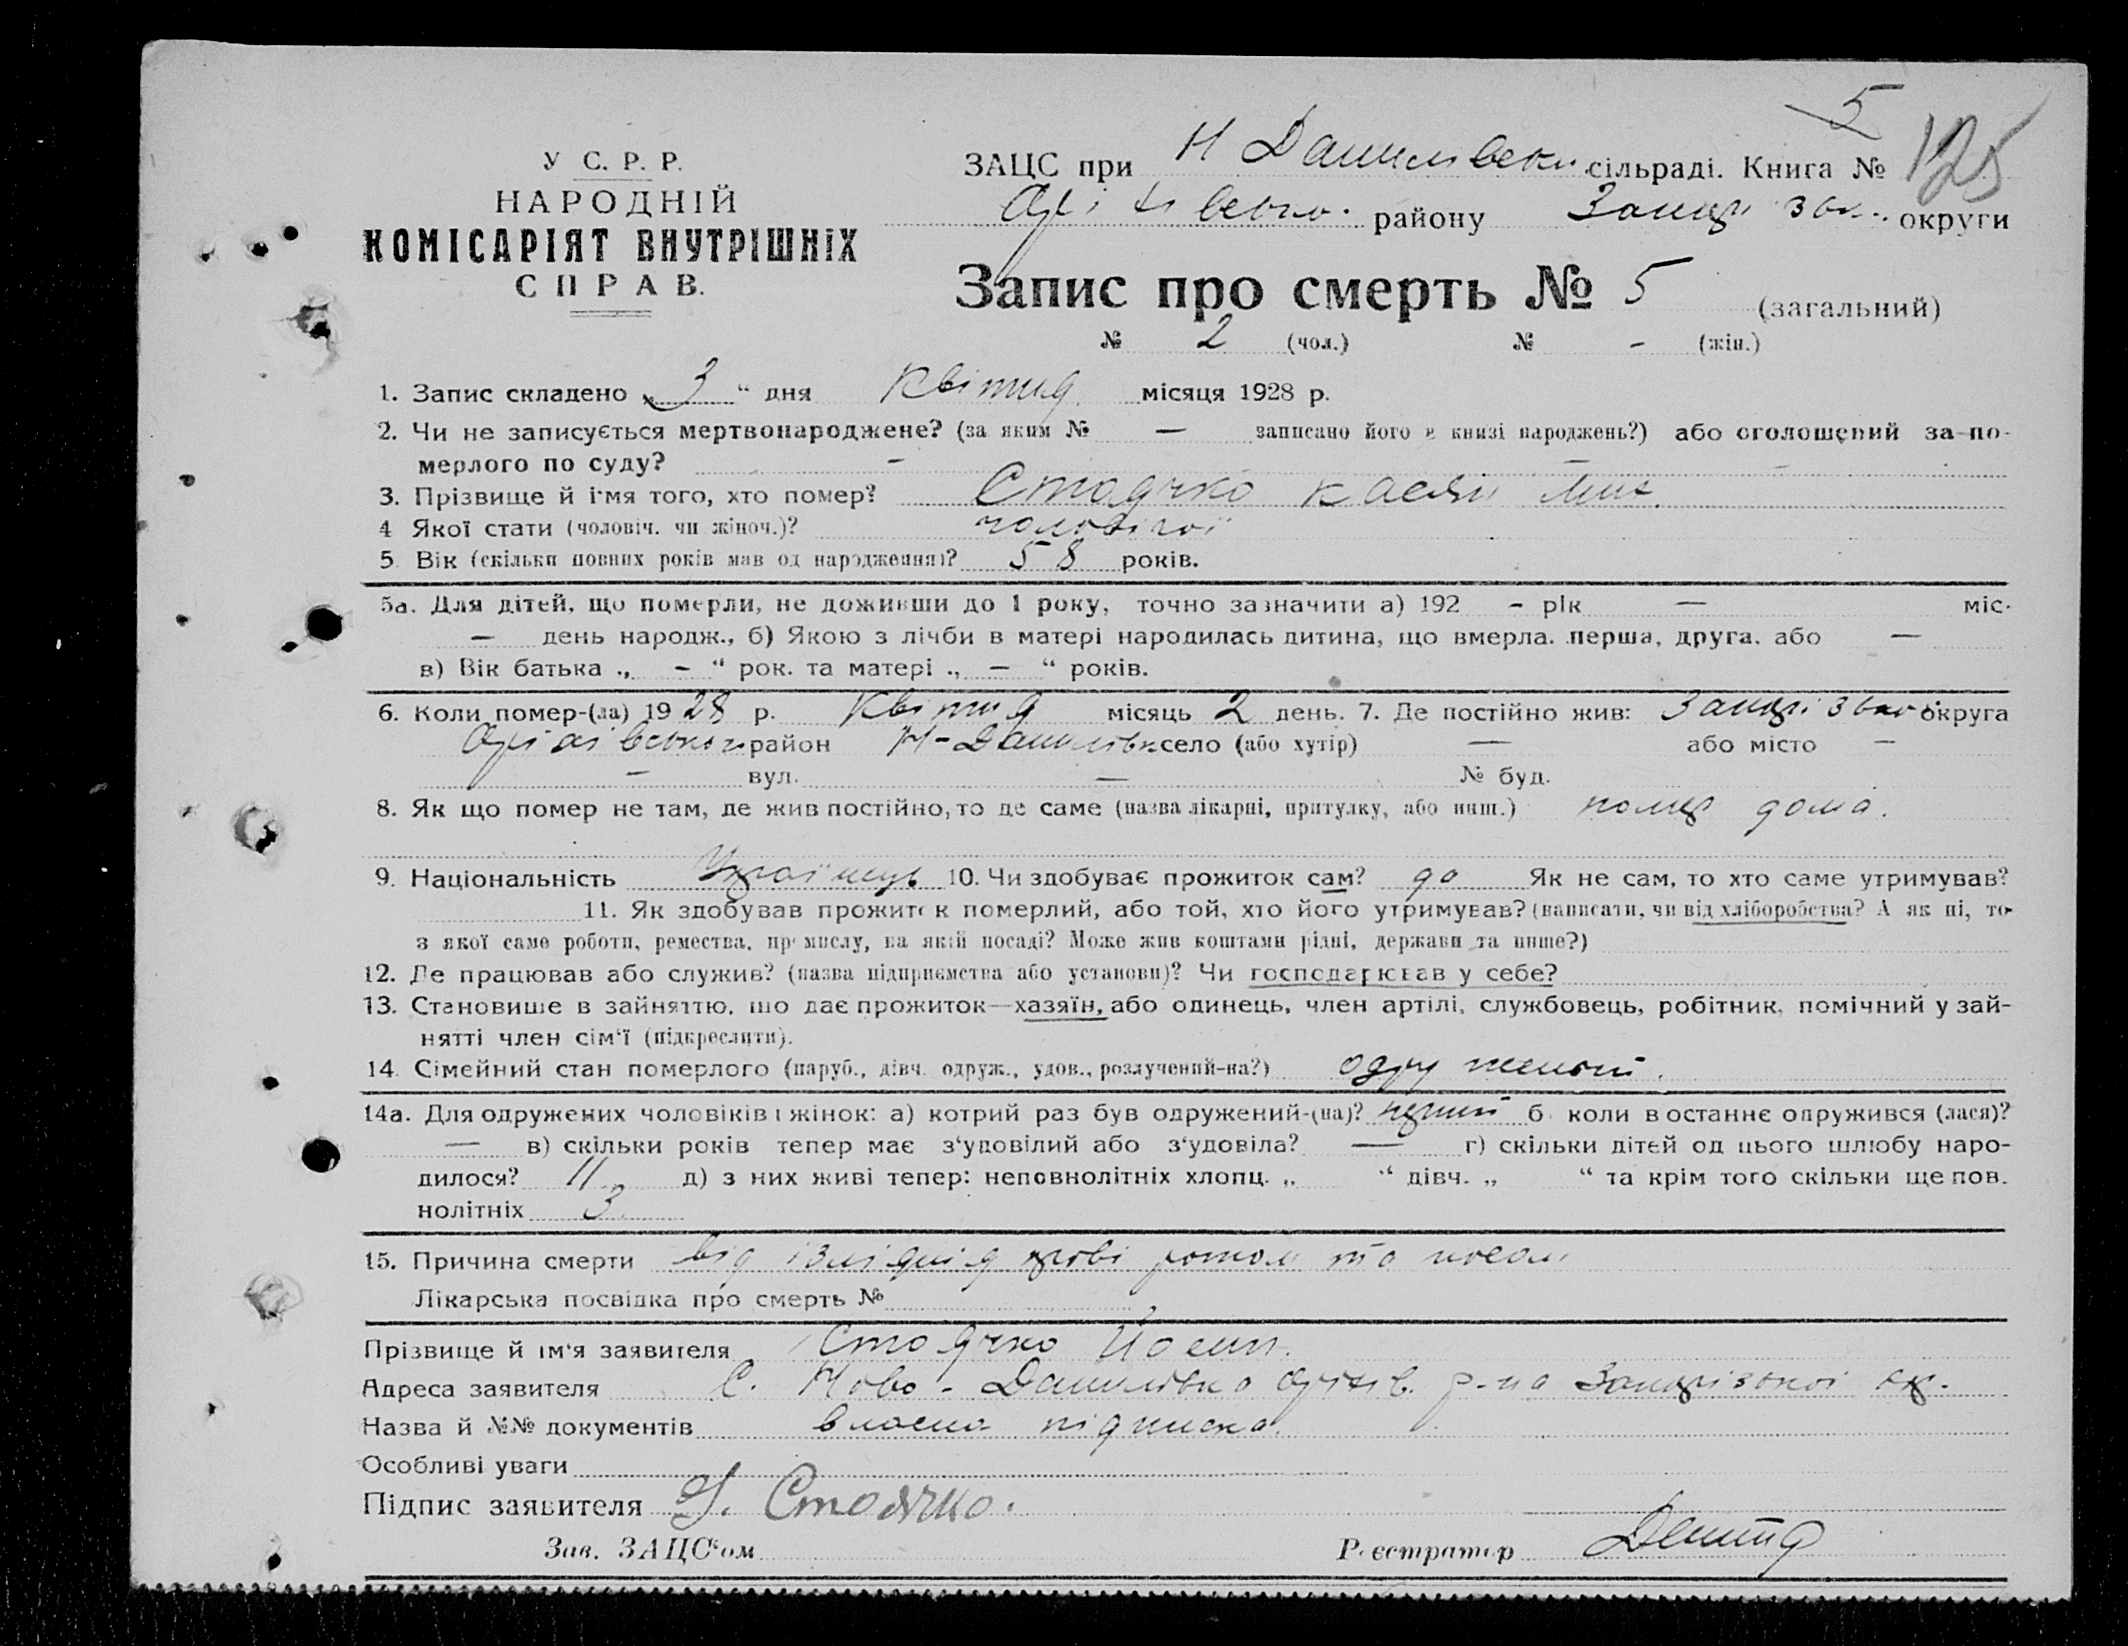 5
У С. Р. Р.
НАРОДНІЙ
КОМІСАРІЯТ ВНУТРІШНІХ
СПРАВ.
ЗАЦС при Н Данилівськ. сільраді. Книга № 125
Оріхівсько. району Запорізьк. округи
Запис про смерть № 5 (загальний)
№ 2 (чол.) № - (жін.)
1. Запис складено „ 3 “ дня Квітня місяця 1928 р.
2. Чи не записується мертвонароджене? (за яким № — записано його в книзі народжень?) або оголошений за по-
мерлого по суду? -
3. Прізвище й ім'я того, хто помер? Стоячко Касян Мих.
4 Якої стати (чоловіч. чи жіноч.)? чоловічої
5. Вік (скільки повних років мав од народження)? 58 років.
5а. Для дітей, що померли, не доживши до 1 року, точно зазначити а) 192 - рік — міс.
— день народж., б) Якою з лічби в матері народилась дитина, що вмерла. перша, друга. або —
в) Вік батька „ - “ рок. та матері „ — “ років.
6. Коли помер-(ла) 1928 р. Квітня місяць 2 день. 7. Де постійно жив: Запорізької округа
Оріхівського район Н-Данилівка село (або хутір) — або місто —
— вул. — № буд.
8. Як що помер не там, де жив постійно, то де саме (назва лікарні, притулку, або инш.) помер дома.
9. Національність Українець 10. Чи здобуває прожиток сам? да Як не сам, то хто саме утримував?
11. Як здобував прожиток померлий, або той, хто його утримував? (написати, чи від хліборобства? А як ні, то
з якої саме роботи, ремества, промислу, на якій посаді? Може жив коштами рідні, держави та инше?)
12. Де працював або служив? (назва підприємства або установи)? Чи господарював у себе?
13. Становище в зайняттю, що дає прожиток—хазяїн, або одинець, член артілі, службовець, робітник, помічний у зай-
нятті член сім'ї (підкреслити).
14. Сімейний стан померлого (паруб., дівч. одруж., удов., розлучений-на?) одружений.
14а. Для одружених чоловіків і жінок: а) котрий раз був одружений-(на)? перший б коли востаннє одружився (лася)?
— в) скільки років тепер має з‘удовілий або з‘удовіла? — г) скільки дітей од цього шлюбу наро-
дилося? 11 д) з них живі тепер: неповнолітніх хлопц. „ “ дівч. „ “ та крім того скільки ще пов.
нолітніх 3.
15. Причина смерти від ізліяния крові ротом та носом
Лікарська посвідка про смерть №
Прізвище й ім‘я заявителя Стоячко Йосип.
Адреса заявителя С. Ново-Данилівка Оріхів. р-на Запорізької ок.
Назва й №№ документів власна підписка.
Особливі уваги
Підпис заявителя Й. Стоячко.
Зав. ЗАЦС‘ом Реєстратор